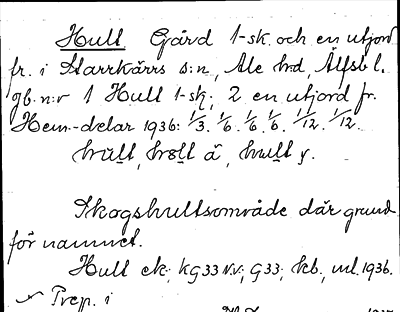 Hult Gård 1-sk. och en utjord
fr. i Starrkärrs s:n, Ale hd, Älfsb l.
gb.n:r 1 Hult 1-sk; 2 en utjord fr.
Hem.-delar 1936: 1/3. 1/6. 1/6. 1/6. 1/12. 1/12.
hult, holt ä, hult y.
Skogshultsområde där grund
för namnet.
Hult ek; kg 33 N.V.; G 33; kb, ml. 1936.
Prep. i